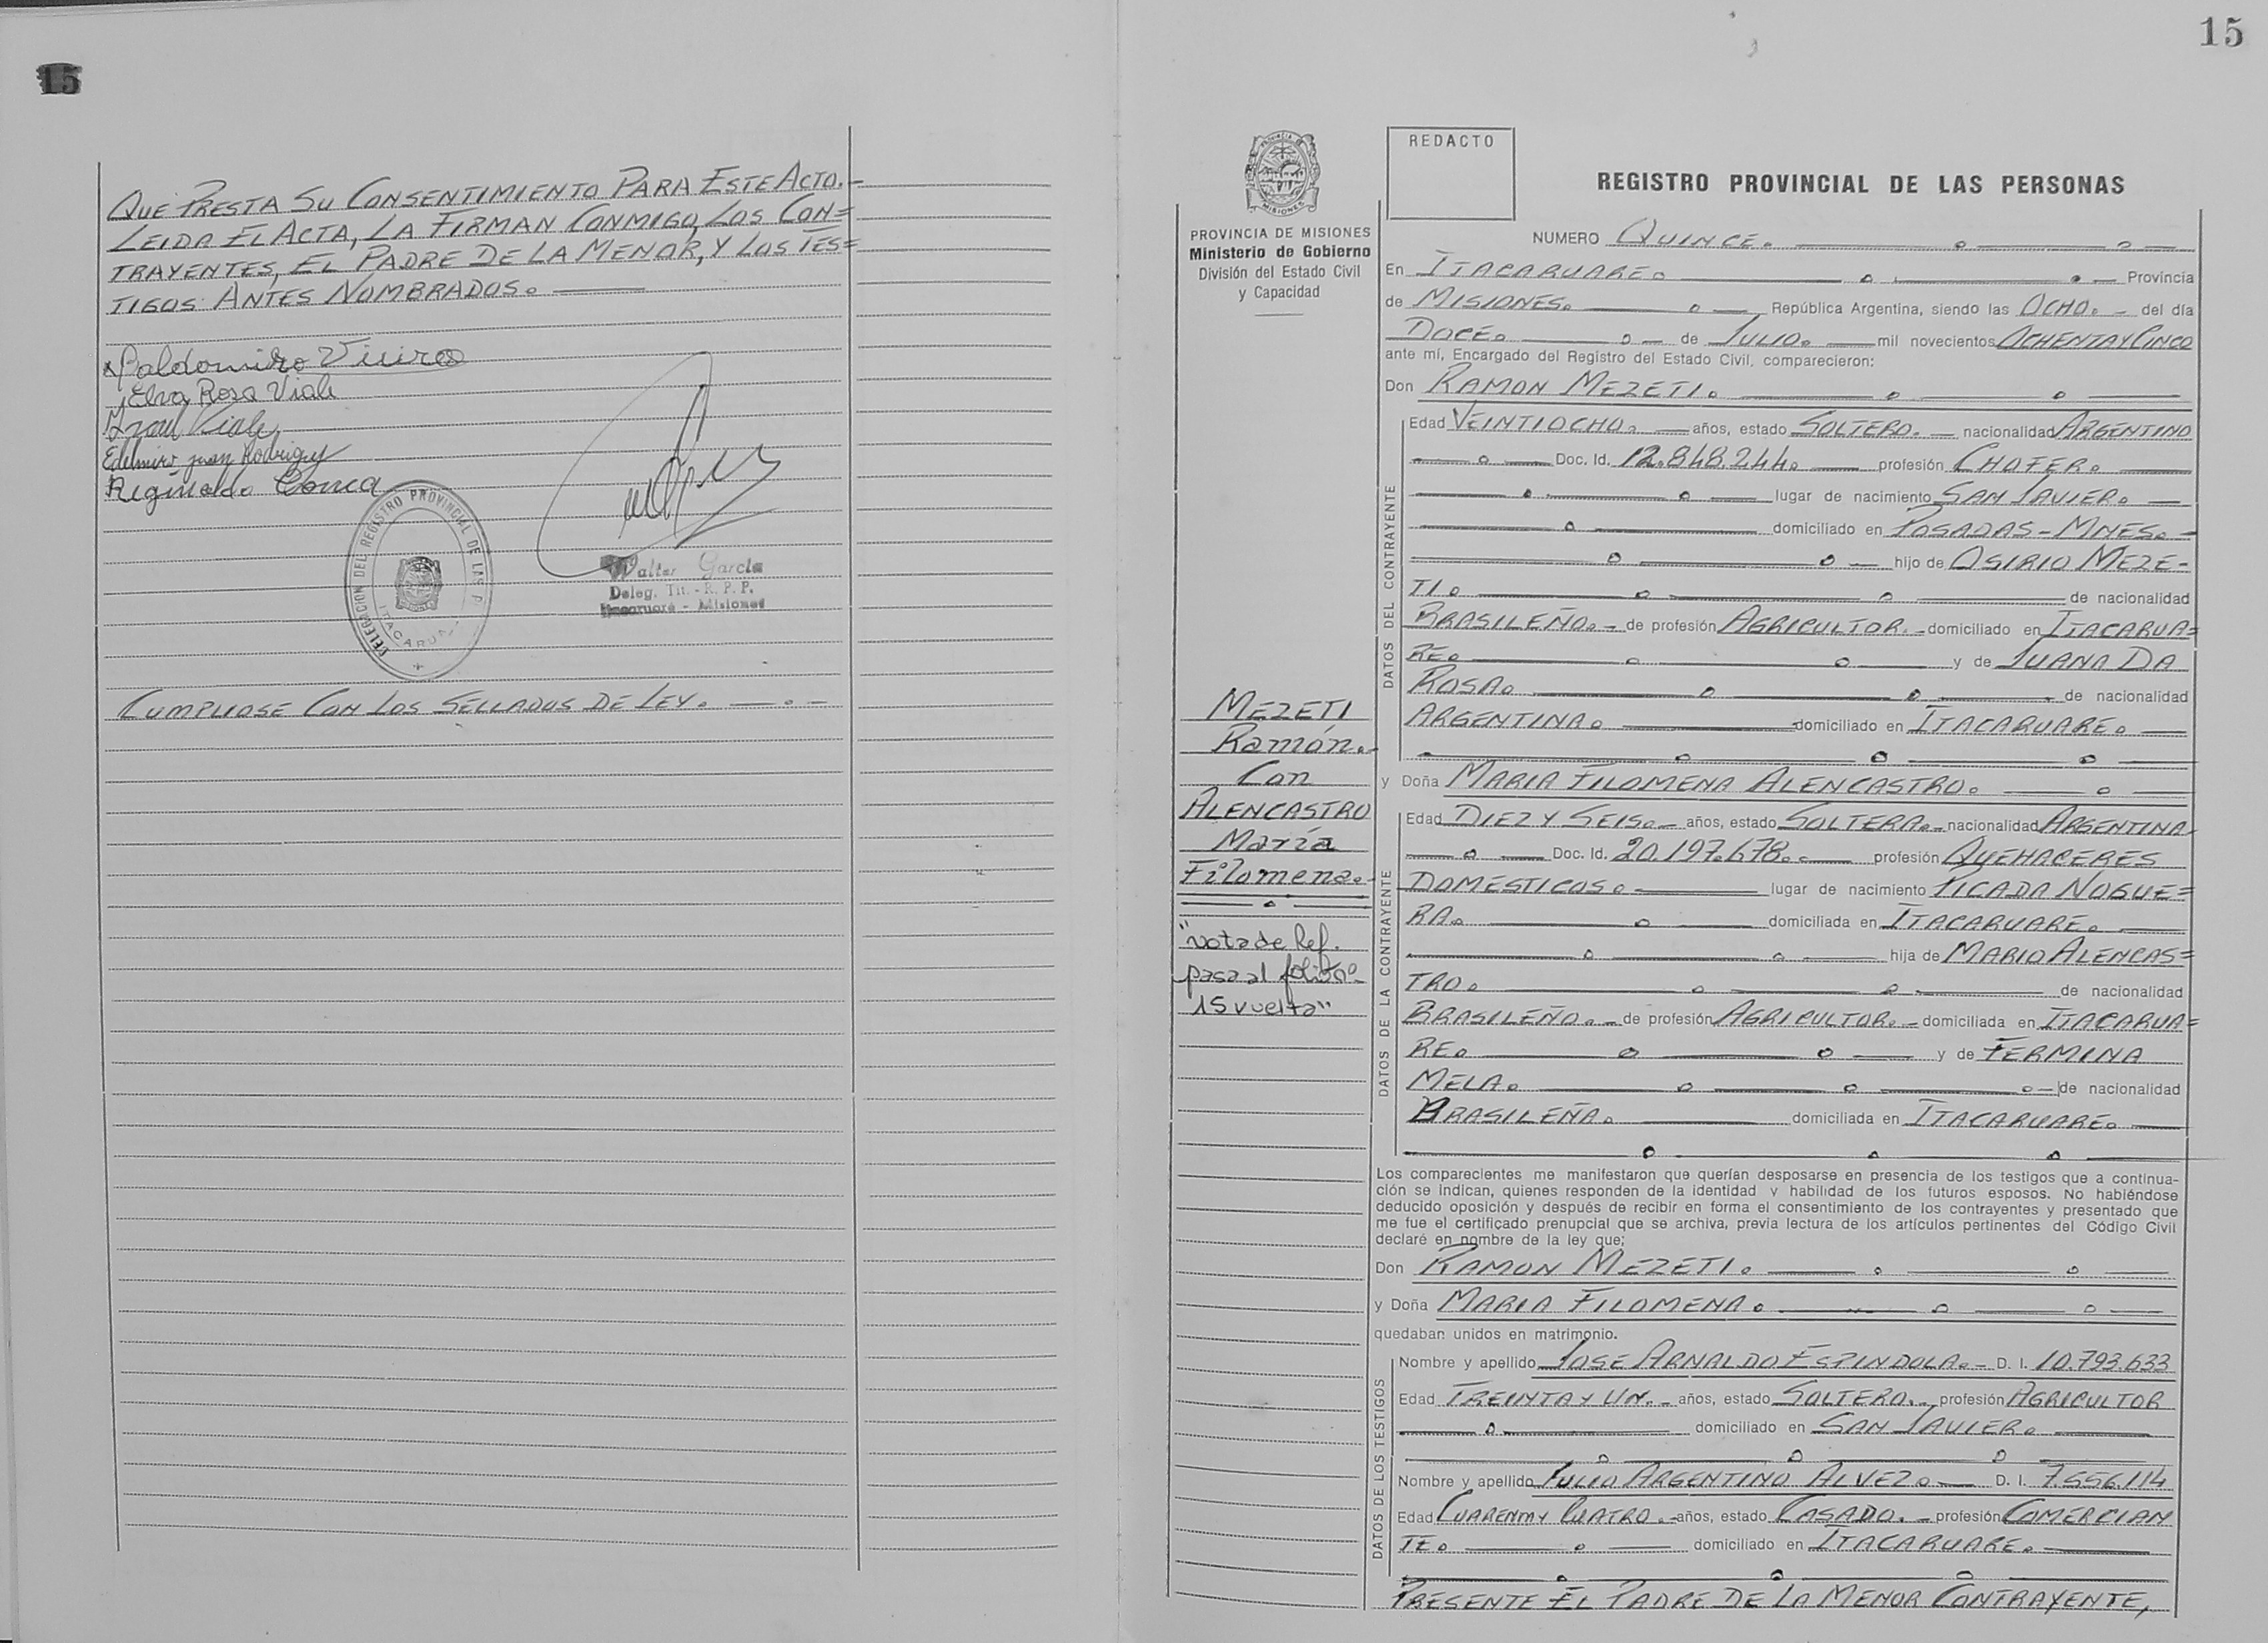 15
QUE PRESTA SU CONSENTIMIENTO PARA ESTE ACTO.-
LEIDA EL ACTA, LA FIRMAN CONMIGO, LOS CON=
TRAYENTES, EL PADRE DE LA MENOR, Y LOS TES=
TIGOS ANTES NOMBRADOS.
Paldomiro Vieira
Elva Rosa Viale
Juan Viale
Edelmiro Juan Rodriguez
Reginaldo Correa
DELEGACION DEL REGISTRO PROVINCIAL DE LAS P.
ITACARUARE
Walter García
Deleg. Tit. - R. P. P.
Itacaruaré - Misiones
CUMPLIOSE CON LOS SELLADOS DE LEY.
15
PROVINCIA DE MISIONES
Ministerio de Gobierno
División del Estado Civil
y Capacidad
MEZETI
Ramón.-
Con
ALENCASTRO
María
Filomena.-
"nota de Ref.
pasa al folio nº
15 vuelta"
REDACTO
REGISTRO PROVINCIAL DE LAS PERSONAS
NUMERO QUINCE.
En ITACARUARE. Provincia
de MISIONES. República Argentina, siendo las OCHO. - del día
DOCE. de JULIO. mil novecientos OCHENTA Y CINCO
ante mí, Encargado del Registro del Estado Civil, comparecieron:
Don RAMON MEZETI.
DATOS DEL CONTRAYENTE
Edad VEINTIOCHO. años, estado SOLTERO. nacionalidad ARGENTINO
Doc. Id. 12.848.244. profesión CHOFER.
lugar de nacimiento SAN JAVIER.
domiciliado en POSADAS - MNES. -
hijo de OSIRIO MEZE-
TI. de nacionalidad
BRASILEÑO. - de profesión AGRICULTOR. - domiciliado en ITACARUA=
RE. y de JUANA DA
ROSA. de nacionalidad
ARGENTINA. domiciliado en ITACARUARE.
y Doña MARIA FILOMENA ALENCASTRO.
DATOS DE LA CONTRAYENTE
Edad DIEZ Y SEIS. - años, estado SOLTERA. - nacionalidad ARGENTINA
Doc. Id. 20.197.678. profesión QUEHACERES
DOMESTICOS. lugar de nacimiento PICADA NOGUE=
RA. domiciliada en ITACARUARE.
hija de MARIO ALENCAS=
TRO. de nacionalidad
BRASILEÑO. - de profesión AGRICULTOR. - domiciliada en ITACARUA=
RE. y de FERMINA
MELA. de nacionalidad
BRASILEÑA. domiciliada en ITACARUARE.
Los comparecientes me manifestaron que querían desposarse en presencia de los testigos que a continua-
ción se indican, quienes responden de la identidad y habilidad de los futuros esposos. No habiéndose
deducido oposición y después de recibir en forma el consentimiento de los contrayentes y presentado que
me fue el certificado prenupcial que se archiva, previa lectura de los artículos pertinentes del Código Civil
declaré en nombre de la ley que;
Don RAMON MEZETI.
y Doña MARIA FILOMENA.
quedaban unidos en matrimonio.
DATOS DE LOS TESTIGOS
Nombre y apellido JOSE ARNALDO ESPINDOLA. - D. I. 10.793.633
Edad TREINTA Y UN. - años, estado SOLTERO. - profesión AGRICULTOR
domiciliado en SAN JAVIER.
Nombre y apellido JULIO ARGENTINO ALVEZ. D. I. 7.556.114
Edad CUARENTA Y CUATRO. - años, estado CASADO. - profesión COMERCIAN
TE. domiciliado en ITACARUARE.
PRESENTE EL PADRE DE LA MENOR CONTRAYENTE,